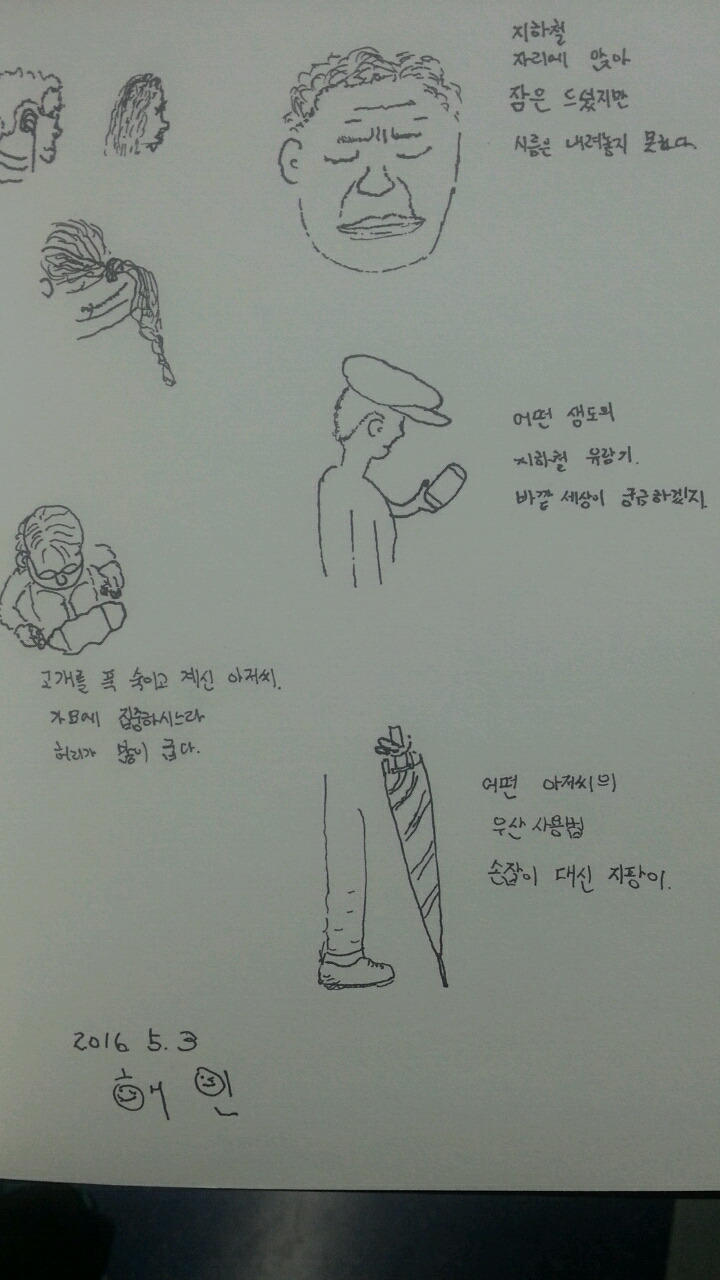 지하철
자리에 앉아
잠은 드셨지만
시름은 내려놓지 못하다.
어떤 생도의
지하철 유람기.
바깥 세상이 궁금하겠지.
고개를 푹 숙이고 계신 아저씨.
가료에 집중하시느라
허리가 많이 굽다.
어떤 아저씨의
우산 사용법
손잡이 대신 지팡이.
2016. 5. 3
혜인